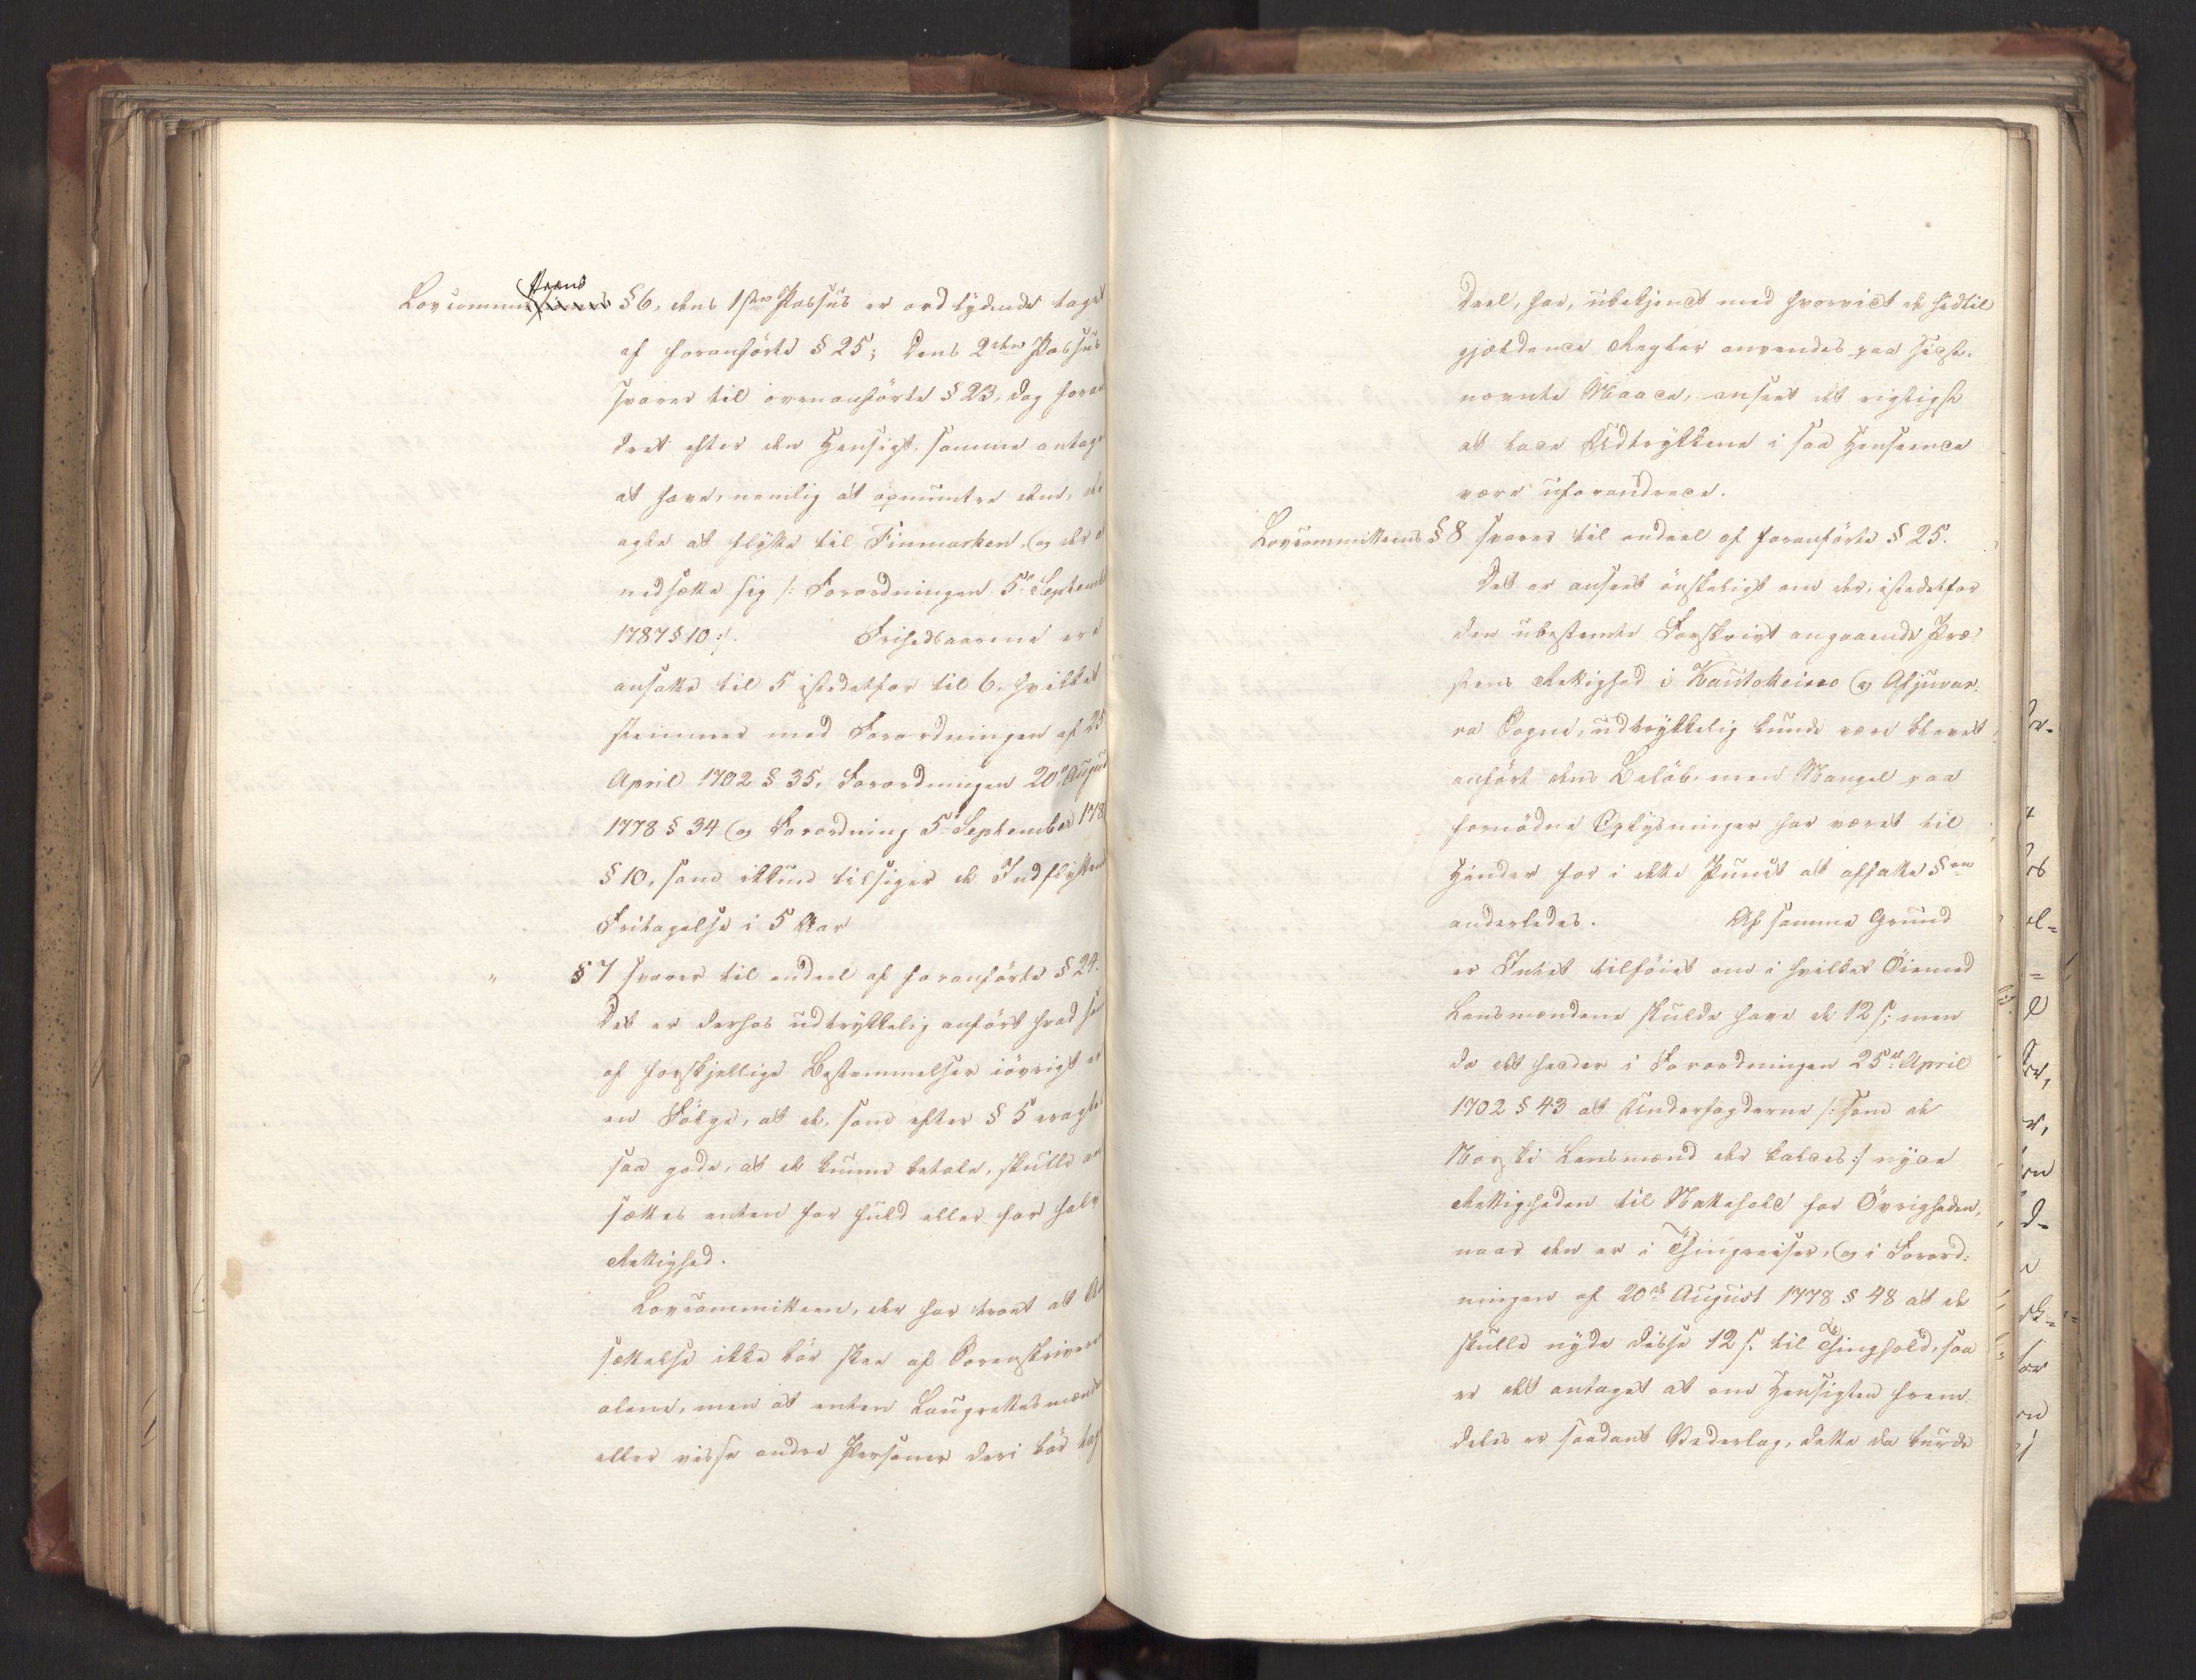 Lovcommitteens § 6, dens 1ste Passus er ordlydende taget
af foranførte § 25; dens 2den Passus
svarer til ovenanførte § 23, dog foran
dret efter den Hensigt samme antages
at have, nemlig at opmuntre dem, der
agte at flytte til Finmarken, og der at
nedsætte sig /: Forordningen 5te September
1787 § 10 :/. Frihedsaarene ere
ansatte til 5 istedetfor til 6, hvilket
stemmer med Forordningen af 25
April 1702 § 35, Forordningen 20de August
1778 § 34 og Forordning 5te September 178
§ 10, som ikkun tilsiger de Indflyttende
Fritagelse i 5 Aar
" § 7 svarer til endeel af foranførte § 24.
Det er derhos udtrykkelig anført hvad som
af forskjellige Bestemmelser iøvrigt er
en Følge, at de, som efter § 5 eragtes
saa gode, at de kunne betale, skulle an
sættes enten for fuld eller for halv
Rettighed.
Lovcommitteen, der har troet at An
sættelse ikke bør skee af Sorenskriveren
alene, men at enten Laugrettesmænd
eller visse andre Personer deri bør tage
Deel, har, ubekjendt med hvorvidt de hidtil
gjældende Regler anvendes paa sidst-
nævnte Maade, anseet det rigtigst
at lade Udtrykkene i saa Henseende
være uforandrede.
Lovcommitteens § 8 svarer til endeel af foranførte § 25.
Det er anseet ønskeligt om der, istedetfor
den ubestemte Forskrivt angaaende Præ-
stens Rettighed i Kautokeino og Afjuvar-
ra Sogne, udtrykkelig kunde være blevet
anført dens Beløb, men Mangel paa
fornødne Oplysninger har været til
Hinder for i dette Punct at affatte §en
anderledes. Af samme Grund
er Intet tilføiet om i hvilket Øiemed
Lensmændene skulde have de 12 s; men
da det heder i Forordningen 25de April
1702 § 43 at Underfogderne /: som de
Norske Lensmænd der kaldes :/ nyde
Rettigheden til Nattehold for Øvrigheden,
naar den er i Thingreiser, og i Forord-
ningen af 20de August 1778 § 48 at de
skulle nyde disse 12 s. til Thinghold, saa
er det antaget at om Hensigten frem-
deles er saadant Vederlag, dette da burde